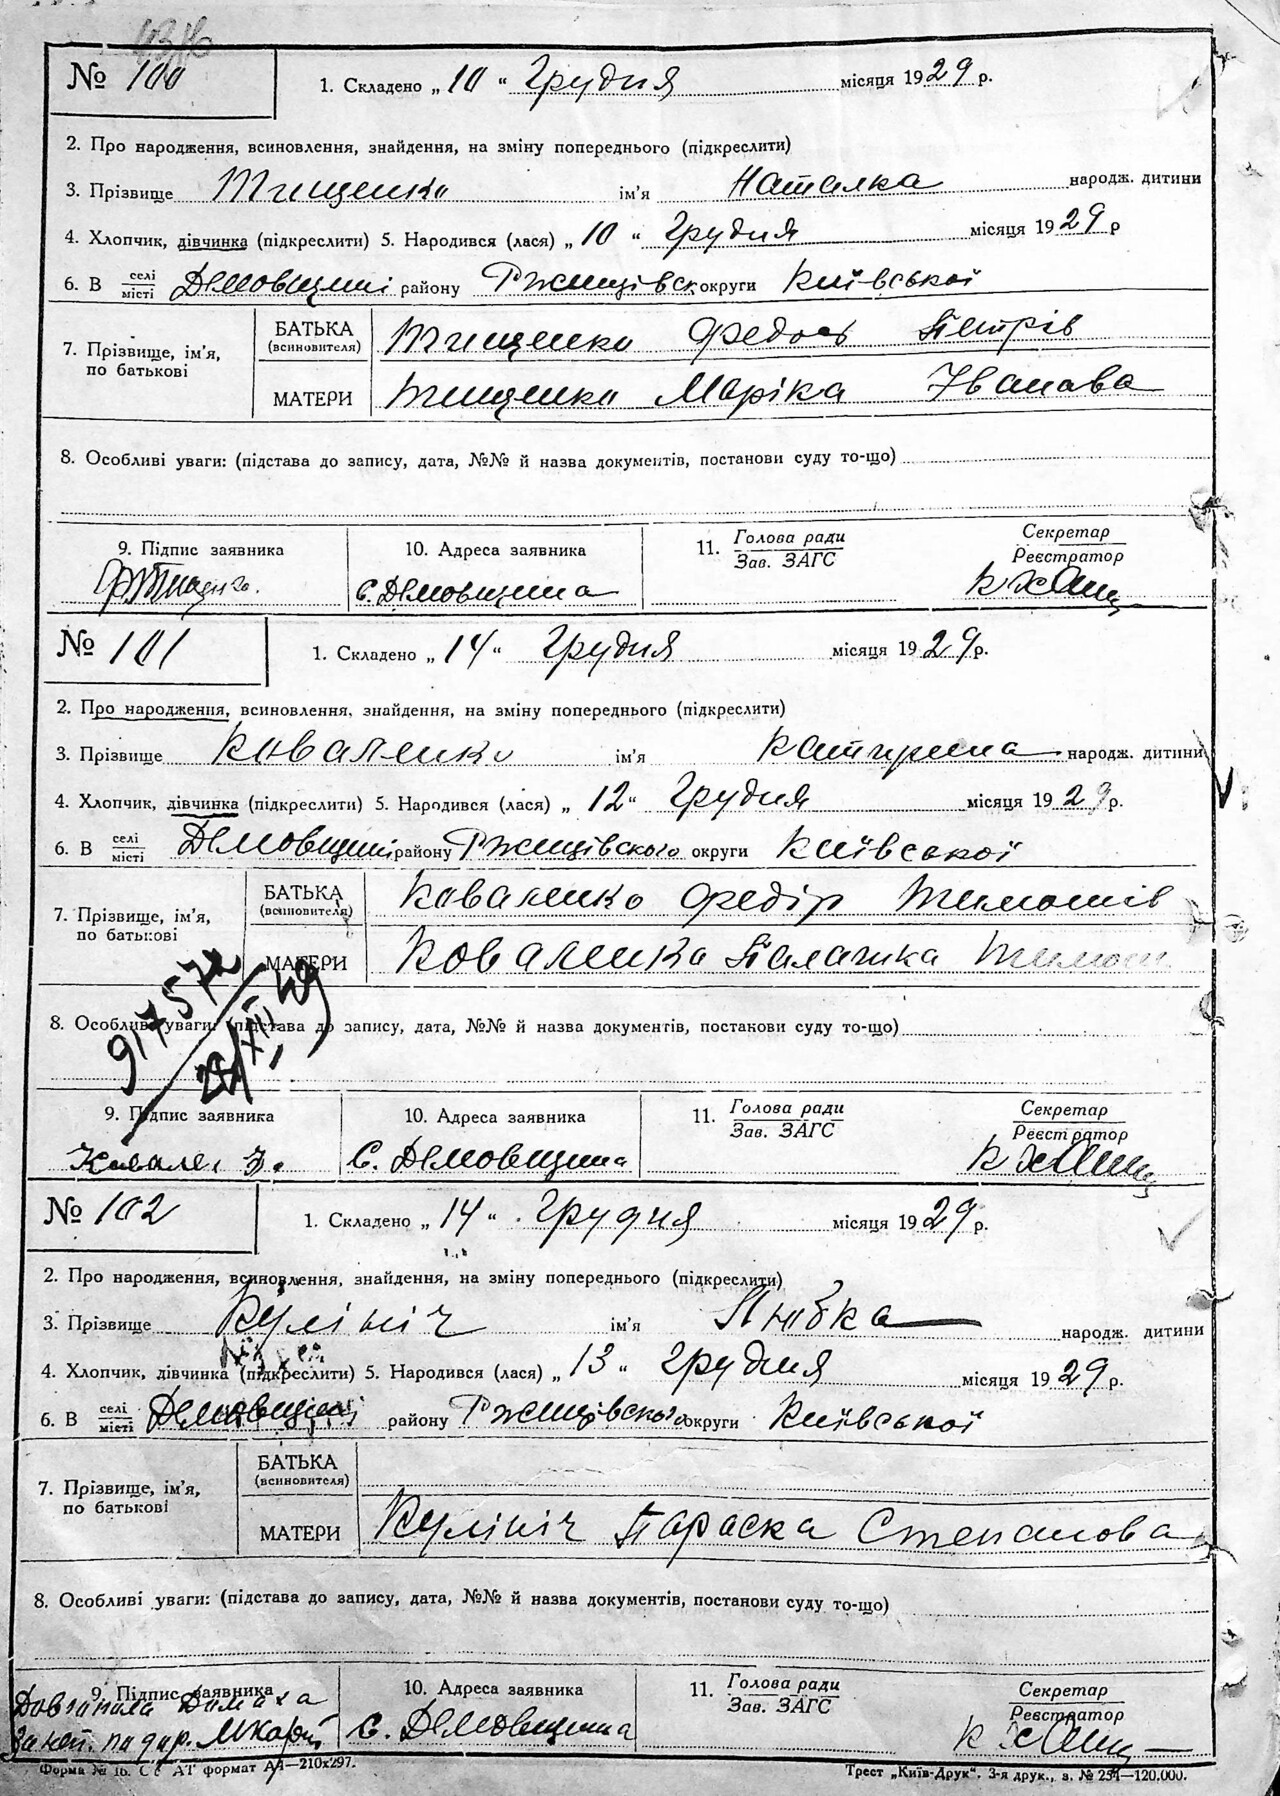 № 100 1. Складено „ 10 “ Грудня місяця 1929 р.
2. Про народження, всиновлення, знайдення, на зміну попереднього (підкреслити)
3. Прізвище Тищенко ім'я Наталка народж. дитини
4. Хлопчик, дівчинка (підкреслити) 5. Народився (лася) „ 10 “ Грудня місяця 1929 р
6. В селі/місті Демовщині району Ржищівськ округи Київської
7. Прізвище, ім'я, по батькові БАТЬКА (всиновителя) Тищенко Федось Петрів
МАТЕРИ Тищенко Маріка Іванова
8. Особливі уваги: (підстава до запису, дата, №№ й назва документів, постанови суду то-що)
9. Підпис заявника 10. Адреса заявника 11. Голова ради/Зав. ЗАГС Секретар/Реєстратор
с. Демовщина
№ 101 1. Складено „ 14 “ Грудня місяця 1929 р.
2. Про народження, всиновлення, знайдення, на зміну попереднього (підкреслити)
3. Прізвище Коваленко ім'я Катирина народж. дитини
4. Хлопчик, дівчинка (підкреслити) 5. Народився (лася) „ 12 “ Грудня місяця 1929 р.
6. В селі/місті Демовщині району Ржищівского округи Київської
7. Прізвище, ім'я, по батькові БАТЬКА (всиновителя) Коваленко Федір Тимошів
МАТЕРИ Коваленко Палажка
8. Особливі уваги: (підстава до запису, дата, №№ й назва документів, постанови суду то-що)
9. Підпис заявника 10. Адреса заявника 11. Голова ради/Зав. ЗАГС Секретар/Реєстратор
с. Демовщина
№ 102 1. Складено „ 14 “ Грудня місяця 1929 р.
2. Про народження, всиновлення, знайдення, на зміну попереднього (підкреслити)
3. Прізвище Кулініч ім'я Любка народж. дитини
4. Хлопчик, дівчинка (підкреслити) 5. Народився (лася) „ 13 “ Грудня місяця 1929 р.
6. В селі/місті Демовщині району Ржищівского округи Київської
7. Прізвище, ім'я, по батькові БАТЬКА (всиновителя)
МАТЕРИ Кулініч Параска Степанова
8. Особливі уваги: (підстава до запису, дата, №№ й назва документів, постанови суду то-що)
9. Підпис заявника 10. Адреса заявника 11. Голова ради/Зав. ЗАГС Секретар/Реєстратор
с. Демовщина
формат А4—210х297. Трест „Київ-Друк“. 3-я друк., з. № 251—120.000.